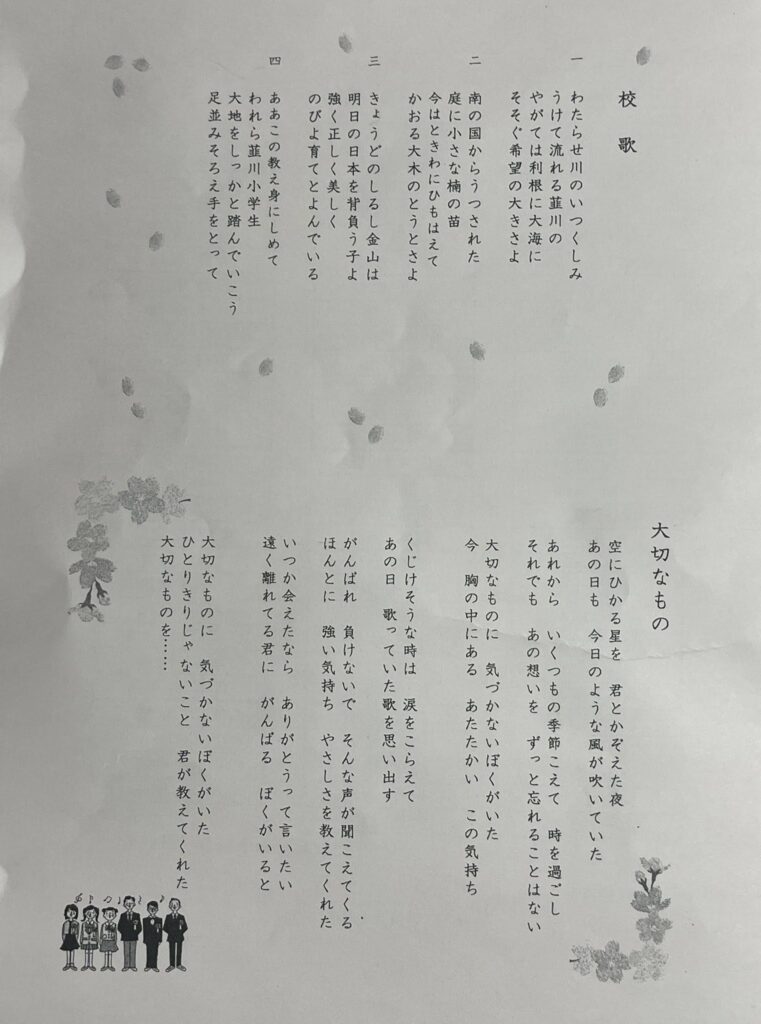 校歌
一
わたらせ川のいつくしみ
うけて流れる韮川の
やがては利根に大海に
そそぐ希望の大きさよ
二
南の国からうつされた
庭に小さな楠の苗
今はときわにひもはえて
かおる大木のとうとさよ
三
きょうどのしるし金山は
明日の日本を背負う子よ
強く正しく美しく
のびよ育てとよんでいる
四
ああこの教え身にしめて
われら韮川小学生
大地をしっかと踏んでいこう
足並みそろえ手をとって
大切なもの
空にひかる星を 君とかぞえた夜
あの日も 今日のような風が吹いていた
あれから いくつもの季節こえて 時を過ごし
それでも あの想いを ずっと忘れることはない
大切なものに 気づかないぼくがいた
今 胸の中にある あたたかい この気持ち
くじけそうな時は 涙をこらえて
あの日 歌っていた歌を思い出す
がんばれ 負けないで そんな声が聞こえてくる
ほんとに 強い気持ち やさしさを教えてくれた
いつか会えたなら ありがとうって言いたい
遠く離れてる君に がんばる ぼくがいると
大切なものに 気づかないぼくがいた
ひとりきりじゃないこと 君が教えてくれた
大切なものを……